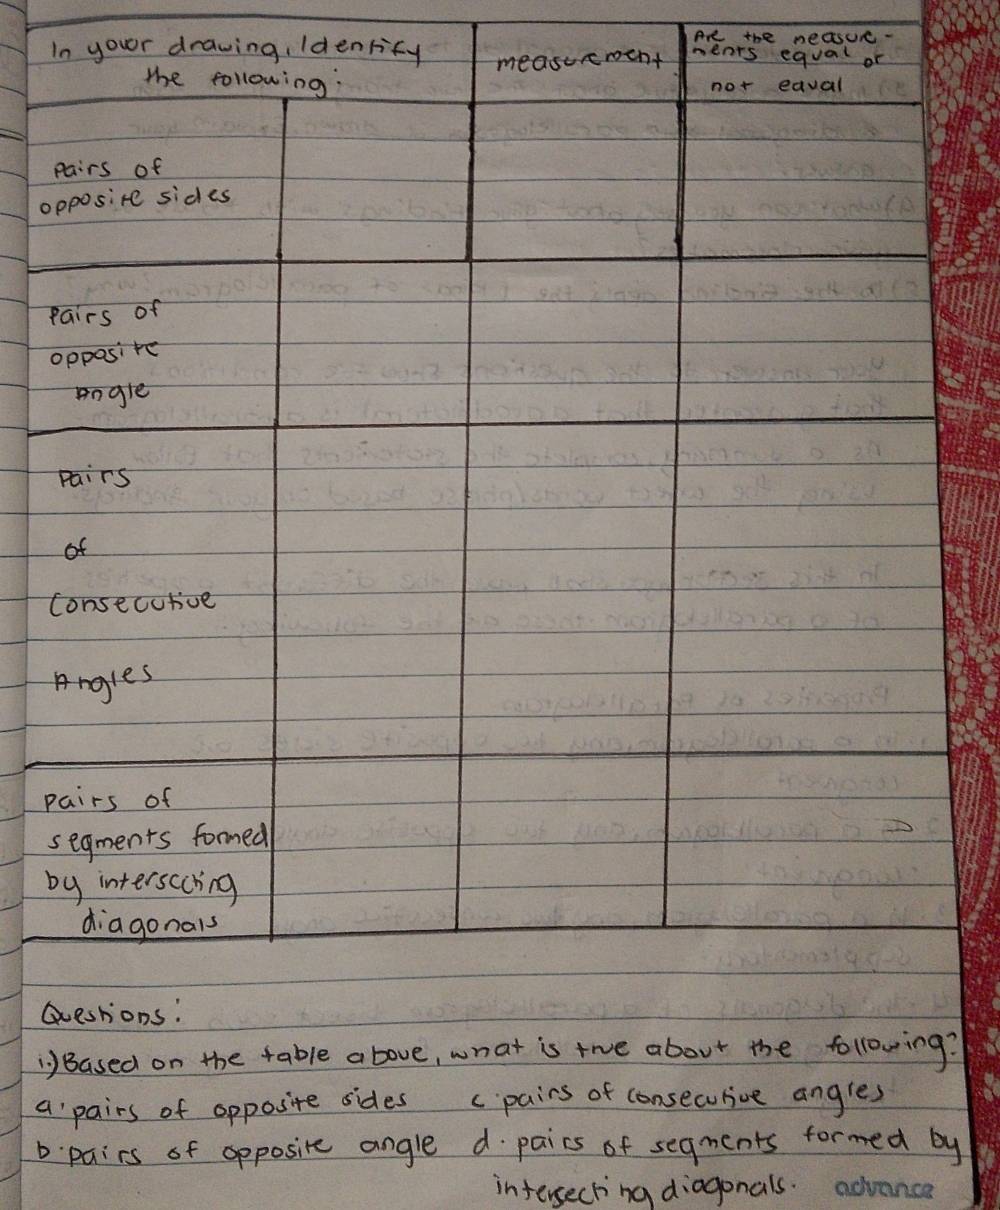 In your drawing, Identify
the following:
measurement
Are the measure-
ments equal or
not equal
Pairs of
opposite sides
Pairs of
opposite
Angle
Pairs
of
Consecutive
Angles
pairs of
segments formed
by interseccing
diagonals
Questions:
1.) Based on the table above, what is true about the following?
a. pairs of opposite sides c. pairs of consecutive angles
b. pairs of opposite angle d. pairs of segments formed by
intersecting diagonals.
advance